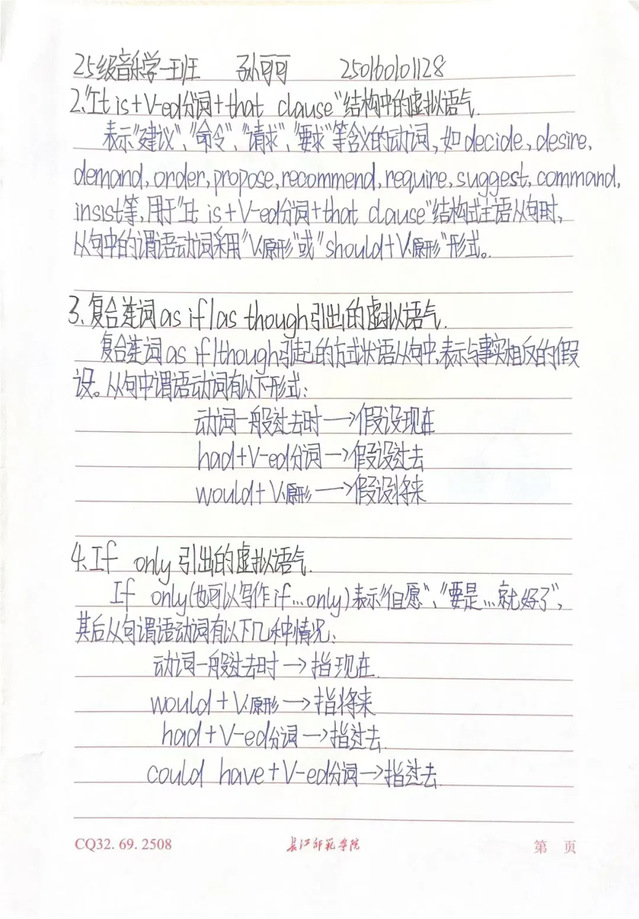 25级音乐学一班 孙丽丽 250160101128
2.“It is+V-ed分词+that clause”结构中的虚拟语气.
表示“建议”、“命令”、“请求”、“要求”等含义的动词,如decide,desire,
demand,order,propose,recommend,require,suggest,command,
insist等,用于“It is+V-ed分词+that clause”结构式主语从句时,
从句中的谓语动词采用“V.原形”或“should+V.原形”形式。
3.复合连词as if/as though引出的虚拟语气.
复合连词as if/though引起的方式状语从句中,表示与事实相反的假
设。从句中谓语动词有以下形式:
动词一般过去时→假设现在
had+V-ed分词→假设过去
would+V.原形→假设将来
4.If only引出的虚拟语气.
If only(也可以写作if...only)表示“但愿”、“要是...就好了”,
其后从句谓语动词有以下几种情况:
动词一般过去时→指现在.
would+V.原形→指将来
had+V-ed分词→指过去.
could have+V-ed分词→指过去.
CQ32.69.2508 长江师范学院 第 页